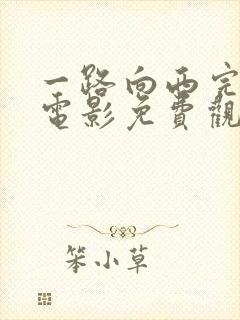 一路向西完
電影免費觀
笨小草